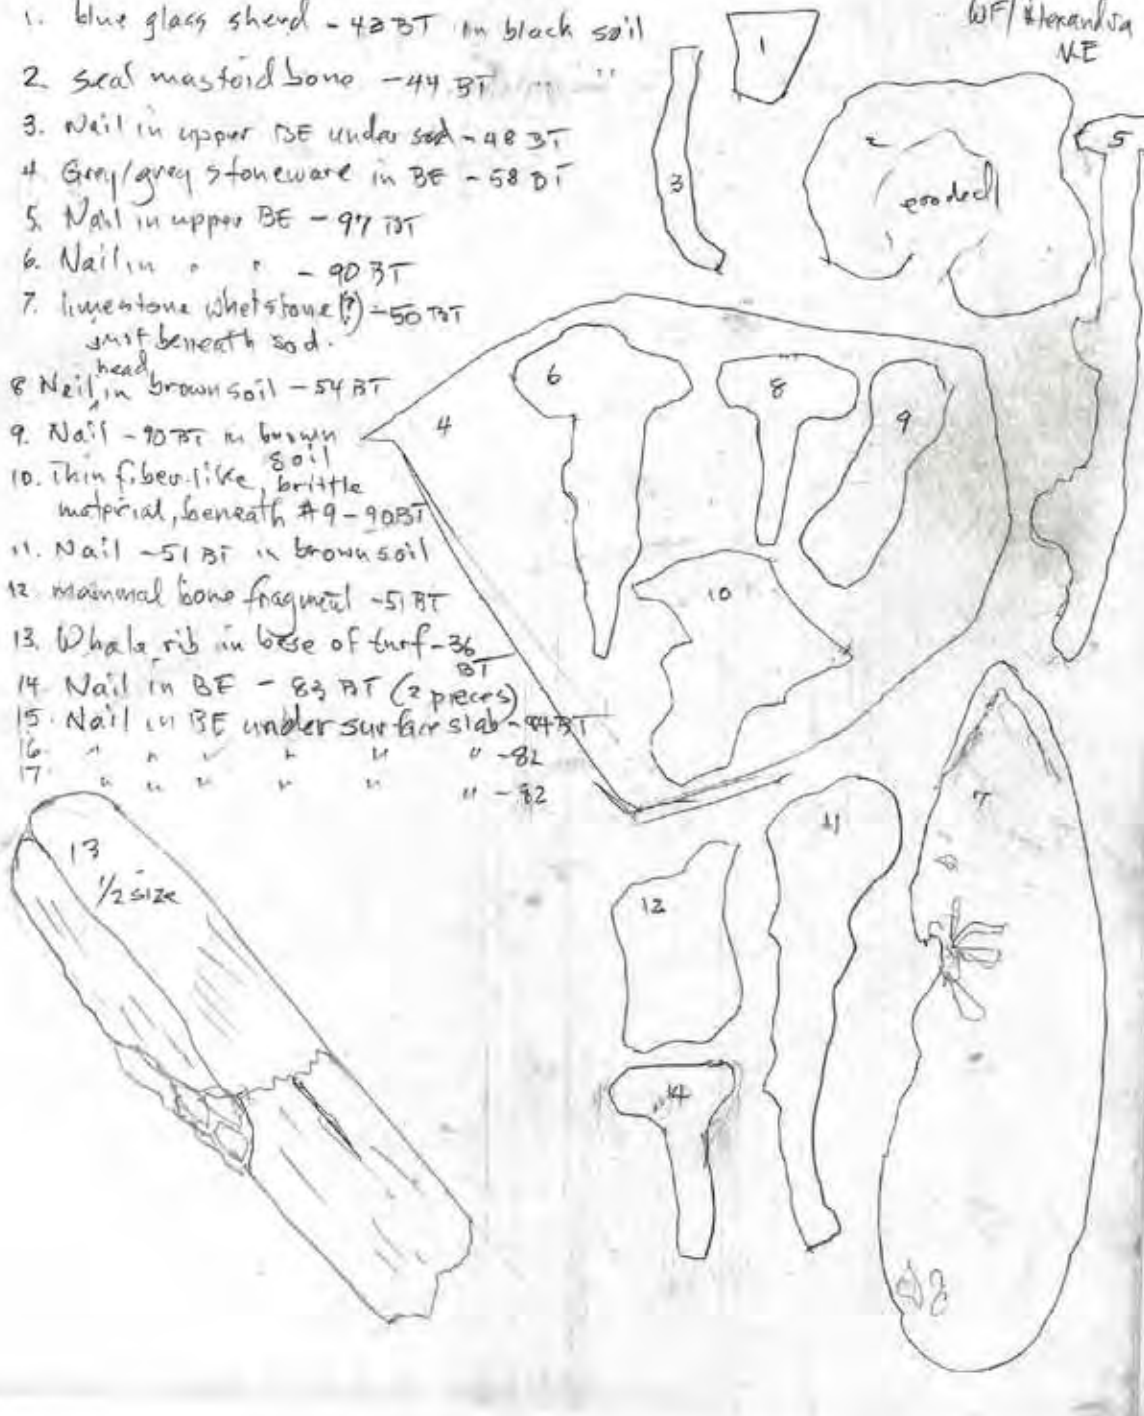 WF/Alexandra
NE
1. blue glass sherd - 42 BT in black soil
2. seal mastoid bone - 44 BT " "
3. Nail in upper BE under sod - 48 BT
4. Grey/grey stoneware in BE - 58 BT
5. Nail in upper BE - 97 BT
6. Nail in " " - 90 BT
7. limestone whetstone(?) - 50 BT
just beneath sod.
head
8 Nail in brown soil - 54 BT
9. Nail - 90 BT in brown
soil
10. Thin fiber-like, brittle
material, beneath #9 - 90 BT
11. Nail - 51 BT in brown soil
12. mammal bone fragment - 51 BT
13. Whale rib in base of turf - 36
BT
14. Nail in BE - 83 BT (2 pieces)
15. Nail in BE under surface slab - 84 BT
16. " " " " " " - 82
17. " " " " " " - 82
1
2
eroded
3
4
5
6
7
8
9
10
11
12
13
1/2 size
14